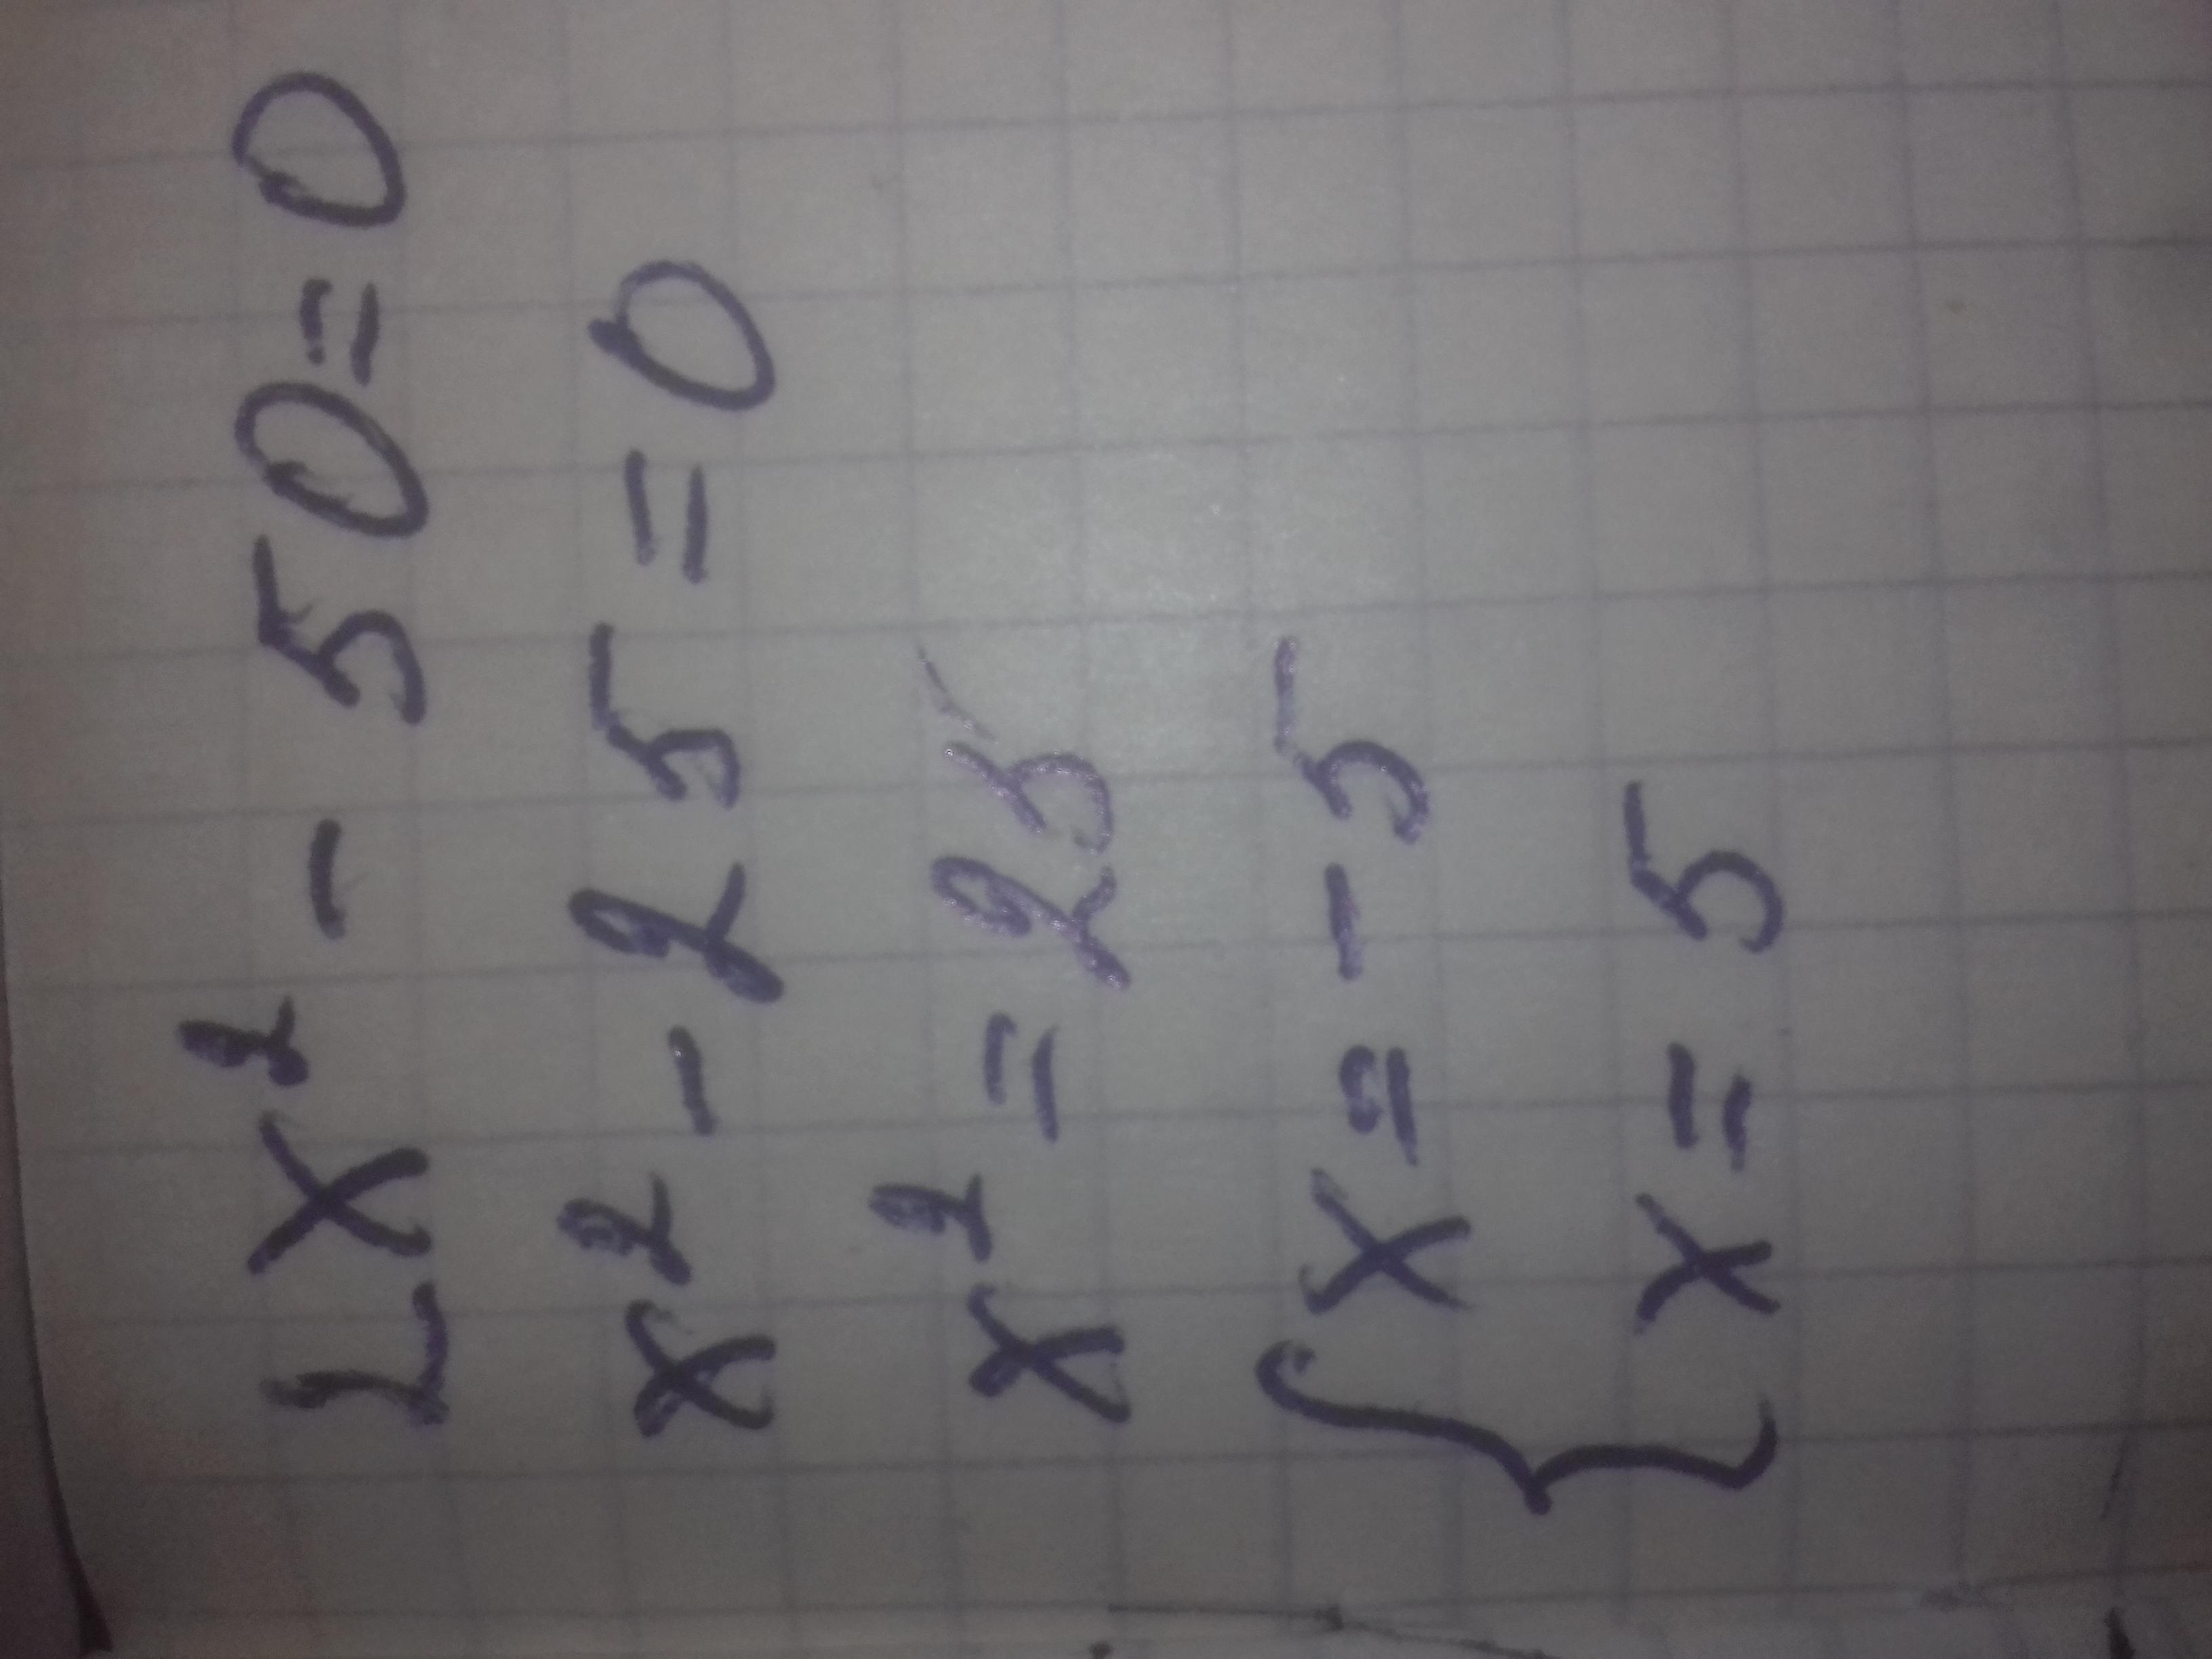 2x² - 50 = 0
x² - 25 = 0
x² = 25
{ x = - 5
x = 5